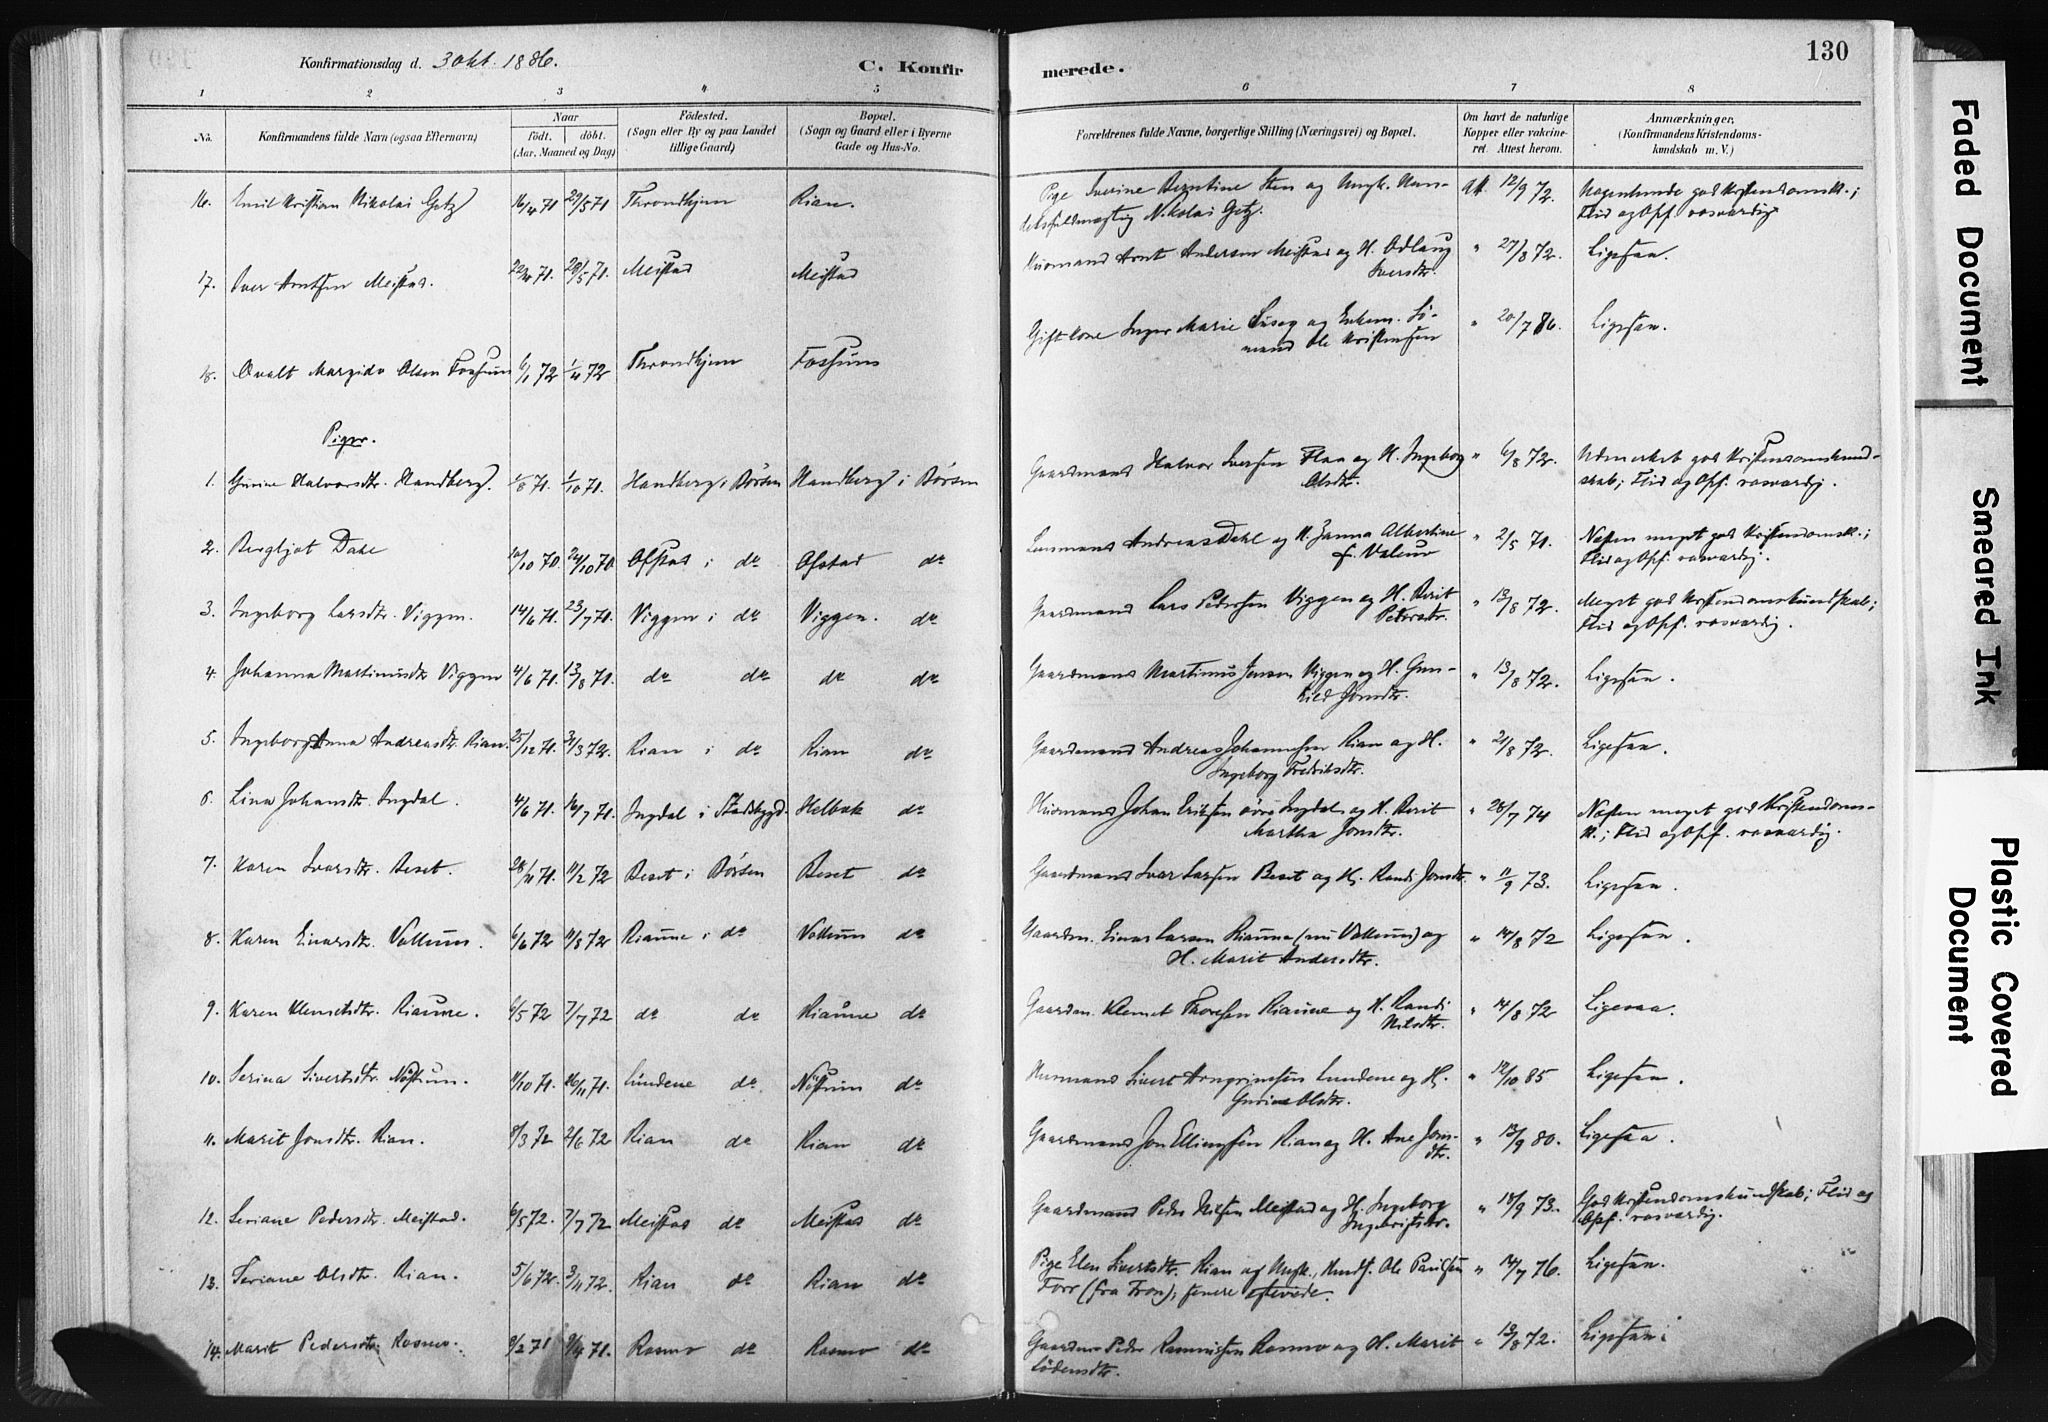 Konfirmationsdag d. 3 Okt. 1886.
C. Konfirmerede.
130
1 2 3 4 5 6 7 8
No.
Konfirmandens fulde Navn (ogsaa Efternavn)
Naar
födt. döbt.
(Aar, Maaned og Dag)
Födested.
(Sogn eller By og paa Landet
tillige Gaard)
Bopæl.
(Sogn og Gaard eller i Byerne
Gade og Hus-No.
Forældrenes fulde Navne, borgerlige Stilling (Næringsvei) og Bopæl.
Om havt de naturlige
Kopper eller vakcine-
ret. Attest herom.
Anmærkninger.
(Konfirmandens Kristendoms-
kundskab m. V.)
16. Emil Kristian Nikolai Getz 16/4 71 29/5 71 Throndhjem Rian. Pige Sverine Berntine Sten og Ungk. Han-
delsfuldmægtig Nikolai Getz. Att. 12/9 72. Nogenlunde god Kristendomsk.;
Flid og Opf. rosværdig
17. Iver Arntsen Meistad. 22/4 71. 29/5 71. Meistad Meistad Husmand Arnt Andersen Meistad og H. Odlaug
Iversdtr. " 27/8 72. Ligesaa.
18. Osvalt Margido Olsen Fossum 6/1 72 1/4 72 Throndhjem Fossum Gift Kone Inger Marie Suseg og Enkem. Sö-
mand Ole Kristensen " 20/7 86. Ligesaa.
Piger.
1. Gurine Halvorsdtr. Handberg. 1/8 71. 1/10 71. Handberg i Börsen Handberg i Börsen Gaardmand Halvor Iversen Flaa og H. Ingeborg
Olsdtr. " 6/8 72. Udmerket god Kristendomskund-
skab; Flid og Opf. rosværdig.
2. Bergljot Dahl 10/10 70. 24/10 70. Ofstad i do Ofstad do Lensmand Andreas Dahl og H. Janna Albertine
f. Valeur " 2/5 71. Næsten meget god Kristendomsk.;
Flid og Opf. rosværdig.
3. Ingeborg Larsdtr. Viggen. 14/6 71. 23/7 71. Viggen i do Viggen. do Gaardmand Lars Pedersen Viggen og H. Berit
Pedersdtr. " 13/8 72. Meget god Kristendomskundskab;
Flid og Opf. rosværdig.
4. Johanna Martinusdtr Viggen 4/6 71. 13/8 71. do do do do Gaardmand Martinus Jensen Viggen og H. Gun-
hild Jonsdtr. " 13/8 72. Ligesaa.
5. Ingeborg Anna Andreasdtr. Rian. 25/12 71. 31/3 72. Rian i do Rian do Gaardmand Andreas Johannesen Rian og H.
Ingeborg Fredriksdtr. " 21/8 72. Ligesaa.
6. Lina Johansdtr. Ingdal. 4/6 71. 16/7 71. Ingdal i Stadsbygd. Helbak do Husmand Johan Eriksen övre Ingdal og H. Berit
Martha Jonsdtr. " 28/7 74 Næsten meget god Kristendoms-
k.; Flid og Opf. rosværdig.
7. Karen Ivarsdtr. Beset. 28/11 71. 11/2 72 Beset i Börsen Beset do Gaardmand Ivar Larsen Beset og H. Randi Jonsdtr. " 11/9 73. Ligesaa.
8. Karen Einarsdtr. Vollum. 6/6 72 11/8 72 Riaune i do Vollum do Gaardm. Einar Larsen Riaune (nu Vollum) og
H. Marit Andersdtr. " 14/8 72 Ligesaa.
9. Karen Klemetsdtr. Riaune. 6/5 72 7/7 72 do do Riaune do Gaardm. Klemet Thoresen Riaune og H. Randi
Nilsdtr. " 14/8 72 Ligesaa.
10. Serina Sivertsdtr. Nöstum. 11/10 71. 26/11 71. Lundene do Nöstum do Husmand Sivert Arngrimsen Lundene og H.
Gurine Olsdtr. " 12/10 85 Ligesaa.
11. Marit Jonsdtr. Rian. 8/3 72 2/6 72 Rian do Rian do Gaardmand Jon Ellingsen Rian og H. Ane Jons-
dtr. " 13/9 80. Ligesaa.
12. Seriane Pedersdtr. Meistad. 6/5 72. 7/7 72 Meistad do Meistad do Gaardmand Peder Nilsen Meistad og H. Ingeborg
Ingebrigtsdtr. " 18/9 73. God Kristendomskundskab; Flid og
Opf. rosværdig.
13. Seriane Olsdtr. Rian. 5/6 72. 3/11 72. Rian do Rian do Pige Elen Sivertsdtr. Rian og Ungk., Kudsk. Ole Paulsen
Forr (fra Fron); senere egtevede. " 14/7 76. Ligesaa.
14. Marit Pedersdtr. Rosmo. 9/2 71 9/4 71. Rosmo do Rosmo do Gaardm. Peder Rasmussen Rosmo og H. Marit
Lödensdtr. " 13/8 72. Ligesaa.
Faded Document
Smeared Ink
Plastic Covered
Document